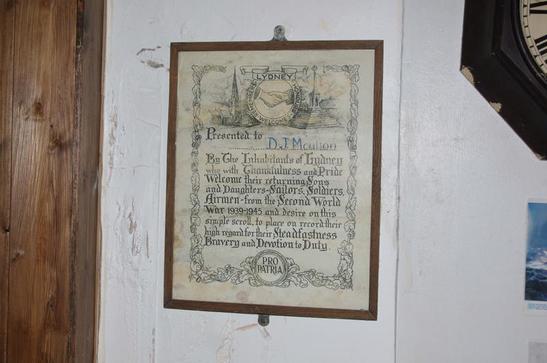 LYDNEY
Presented to
D.J.M
By The Inhabitants of Lydney
who with Thankfulness and Pride
Welcome their returning Sons
and Daughters-Sailors, Soldiers,
Airmen-from the Second World
War 1939-1945 and desire on this
simple scroll, to place on record their
high regard for their Steadfastness
Bravery and Devotion to Duty.
PRO
PATRIA